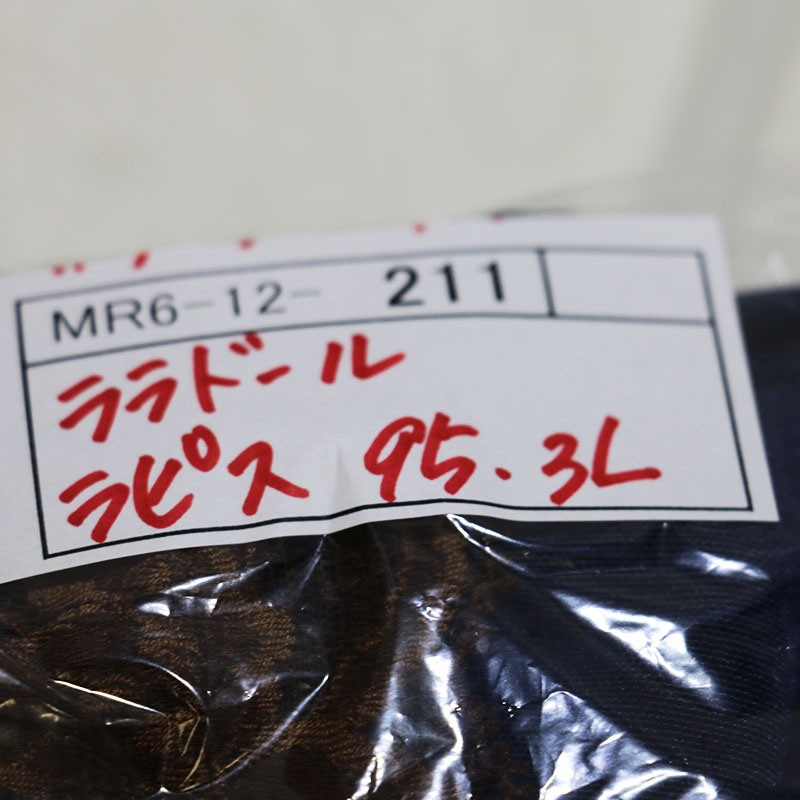 MR6-12- 211
ララドール
ラピス 95.3L